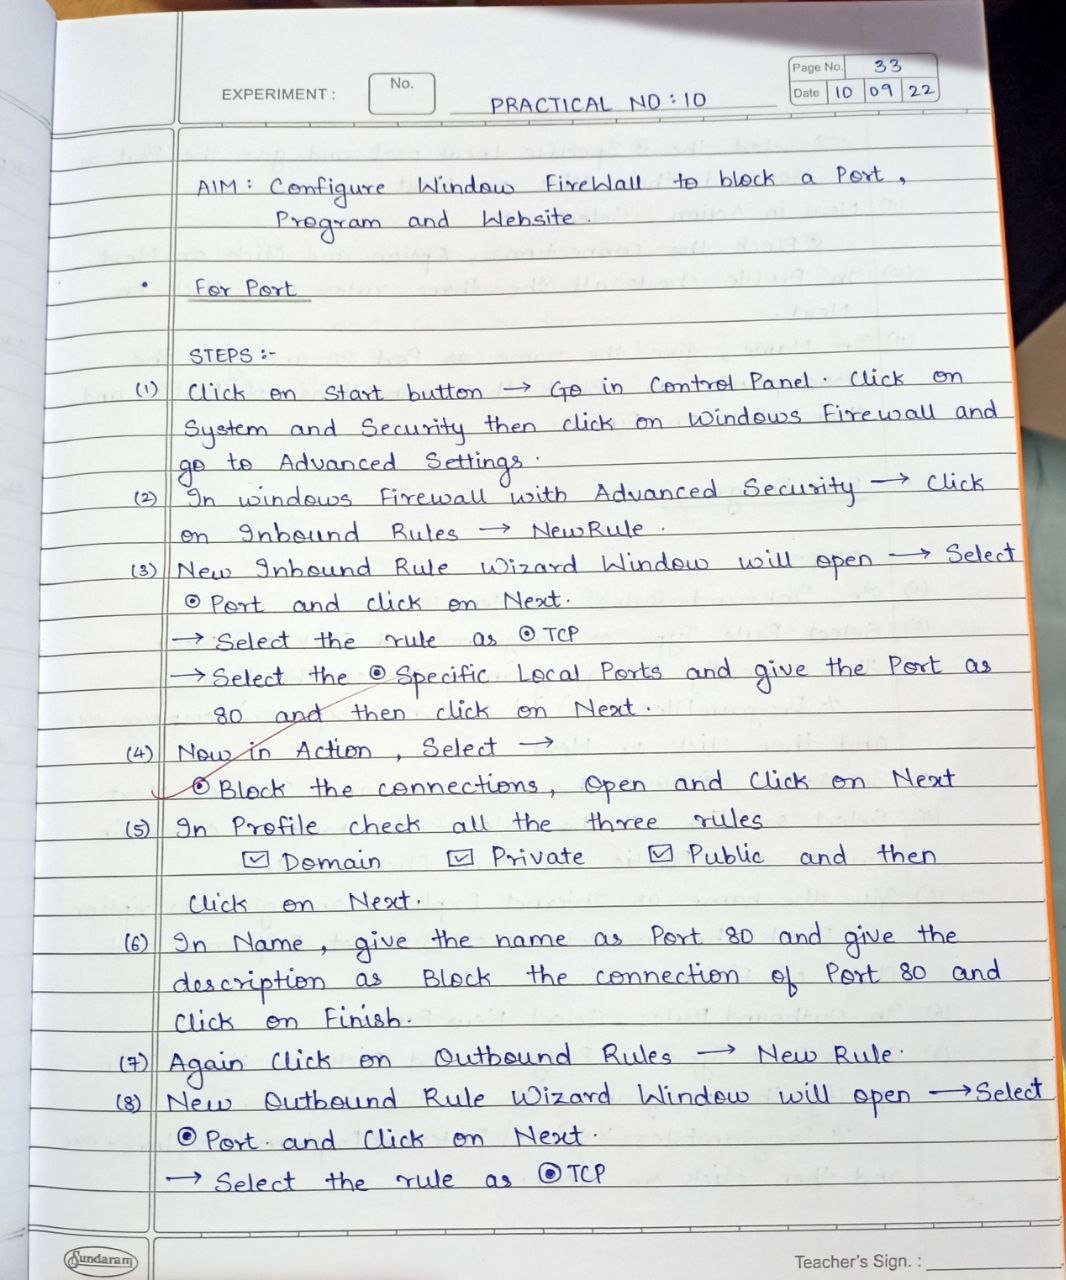 Page No. 33
EXPERIMENT : No. PRACTICAL NO : 10
Date 10 09 22
AIM : Configure Window FireWall to block a Port ,
Program and Website .
• For Port
STEPS :-
(1) Click on Start button → Go in Control Panel . Click on
System and Security then click on Windows Firewall and
go to Advanced Settings .
(2) In windows Firewall with Advanced Security → Click
on Inbound Rules → New Rule .
(3) New Inbound Rule Wizard Window will open → Select
⦿ Port and click on Next .
→ Select the rule as ⦿ TCP
→ Select the ⦿ Specific Local Ports and give the Port as
80 and then click on Next .
(4) Now in Action , Select →
⦿ Block the connections , Open and Click on Next
(5) In Profile check all the three rules
☑ Domain ☑ Private ☑ Public and then
Click on Next .
(6) In Name , give the name as Port 80 and give the
description as Block the connection of Port 80 and
Click on Finish .
(7) Again Click on Outbound Rules → New Rule .
(8) New Outbound Rule Wizard Window will open → Select
⦿ Port and Click on Next .
→ Select the rule as ⦿ TCP
Sundaram
Teacher's Sign. :